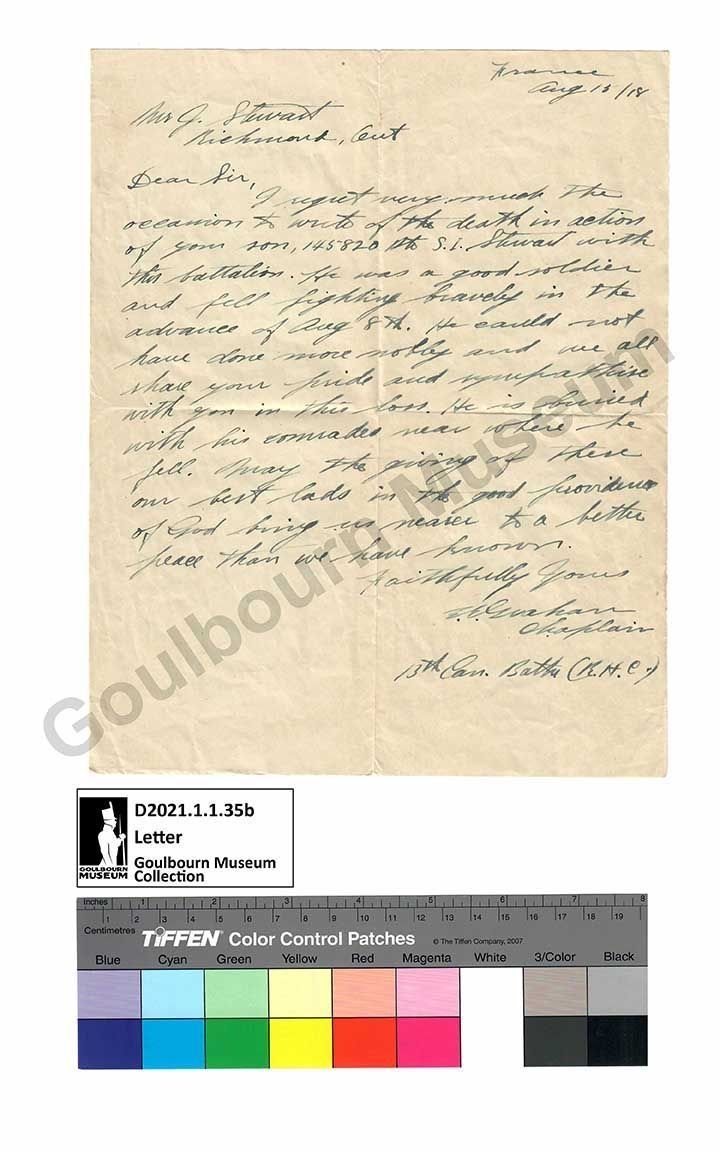 France
Aug 13/18
Mr J. Stewart
Richmond, Ont
Dear Sir,
I regret very much the
occasion to write of the death in action
of your son, 145820 Pte S.I. Stewart with
this battalion. He was a good soldier
and fell fighting bravely in the
advance of Aug 8th. He could not
have done more nobly and we all
share your pride and sympathise
with you in this loss. He is buried
with his comrades near where he
fell. May the giving of these
our best lads in the good providence
of God bring us nearer to a better
peace than we have known.
Faithfully Yours
Graham
Chaplain
13th Can. Battn (R.H.C.)
Goulbourn Museum
D2021.1.1.35b
Letter
Goulbourn Museum
Collection
GOULBOURN
MUSEUM
Inches 1 2 3 4 5 6 7 8
Centimetres 1 2 3 4 5 6 7 8 9 10 11 12 13 14 15 16 17 18 19
TIFFEN Color Control Patches © The Tiffen Company, 2007
Blue Cyan Green Yellow Red Magenta White 3/Color Black